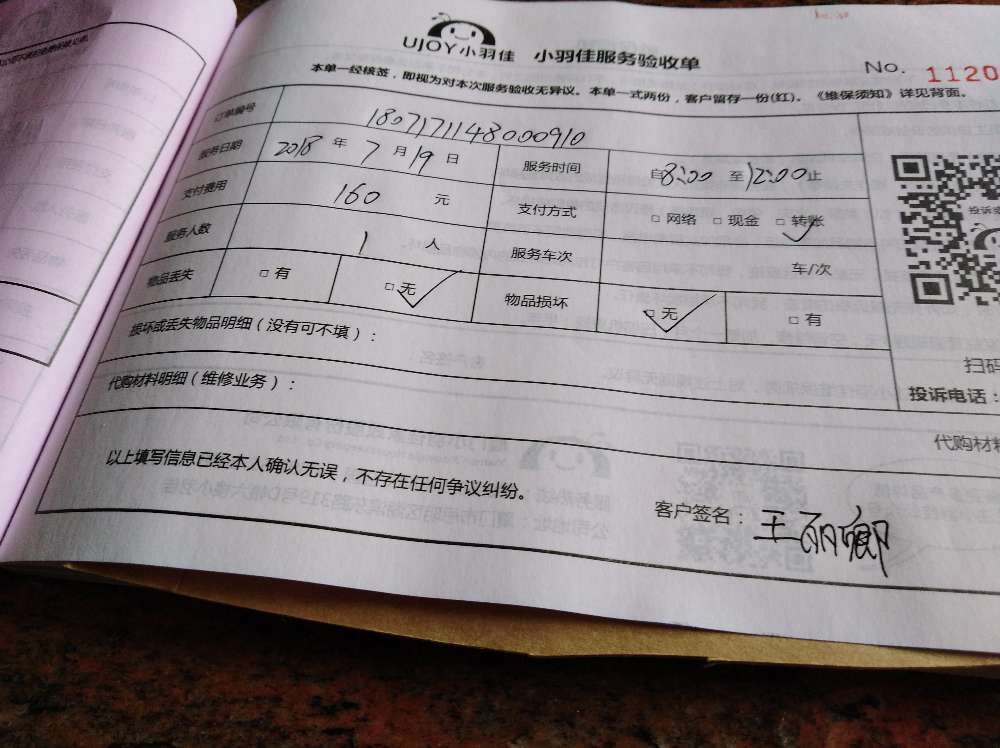 UJOY小羽佳 小羽佳服务验收单
No. 1120
本单一经核签，即视为对本次服务验收无异议。本单一式两份，客户留存一份(红)。《维保须知》详见背面。
订单编号 1807171148000910
服务日期 2018 年 7 月 19 日 服务时间 自8:00 至12:00止
支付费用 160 元 支付方式 □ 网络 □ 现金 □ 转账
服务人数 1 人 服务车次 车/次
物品丢失 □ 有 □ 无 物品损坏 □ 无 □ 有
损坏或丢失物品明细（没有可不填）：
扫码
代购材料明细（维修业务）：
投诉电话：
代购材
以上填写信息已经本人确认无误，不存在任何争议纠纷。
客户签名：王丽卿